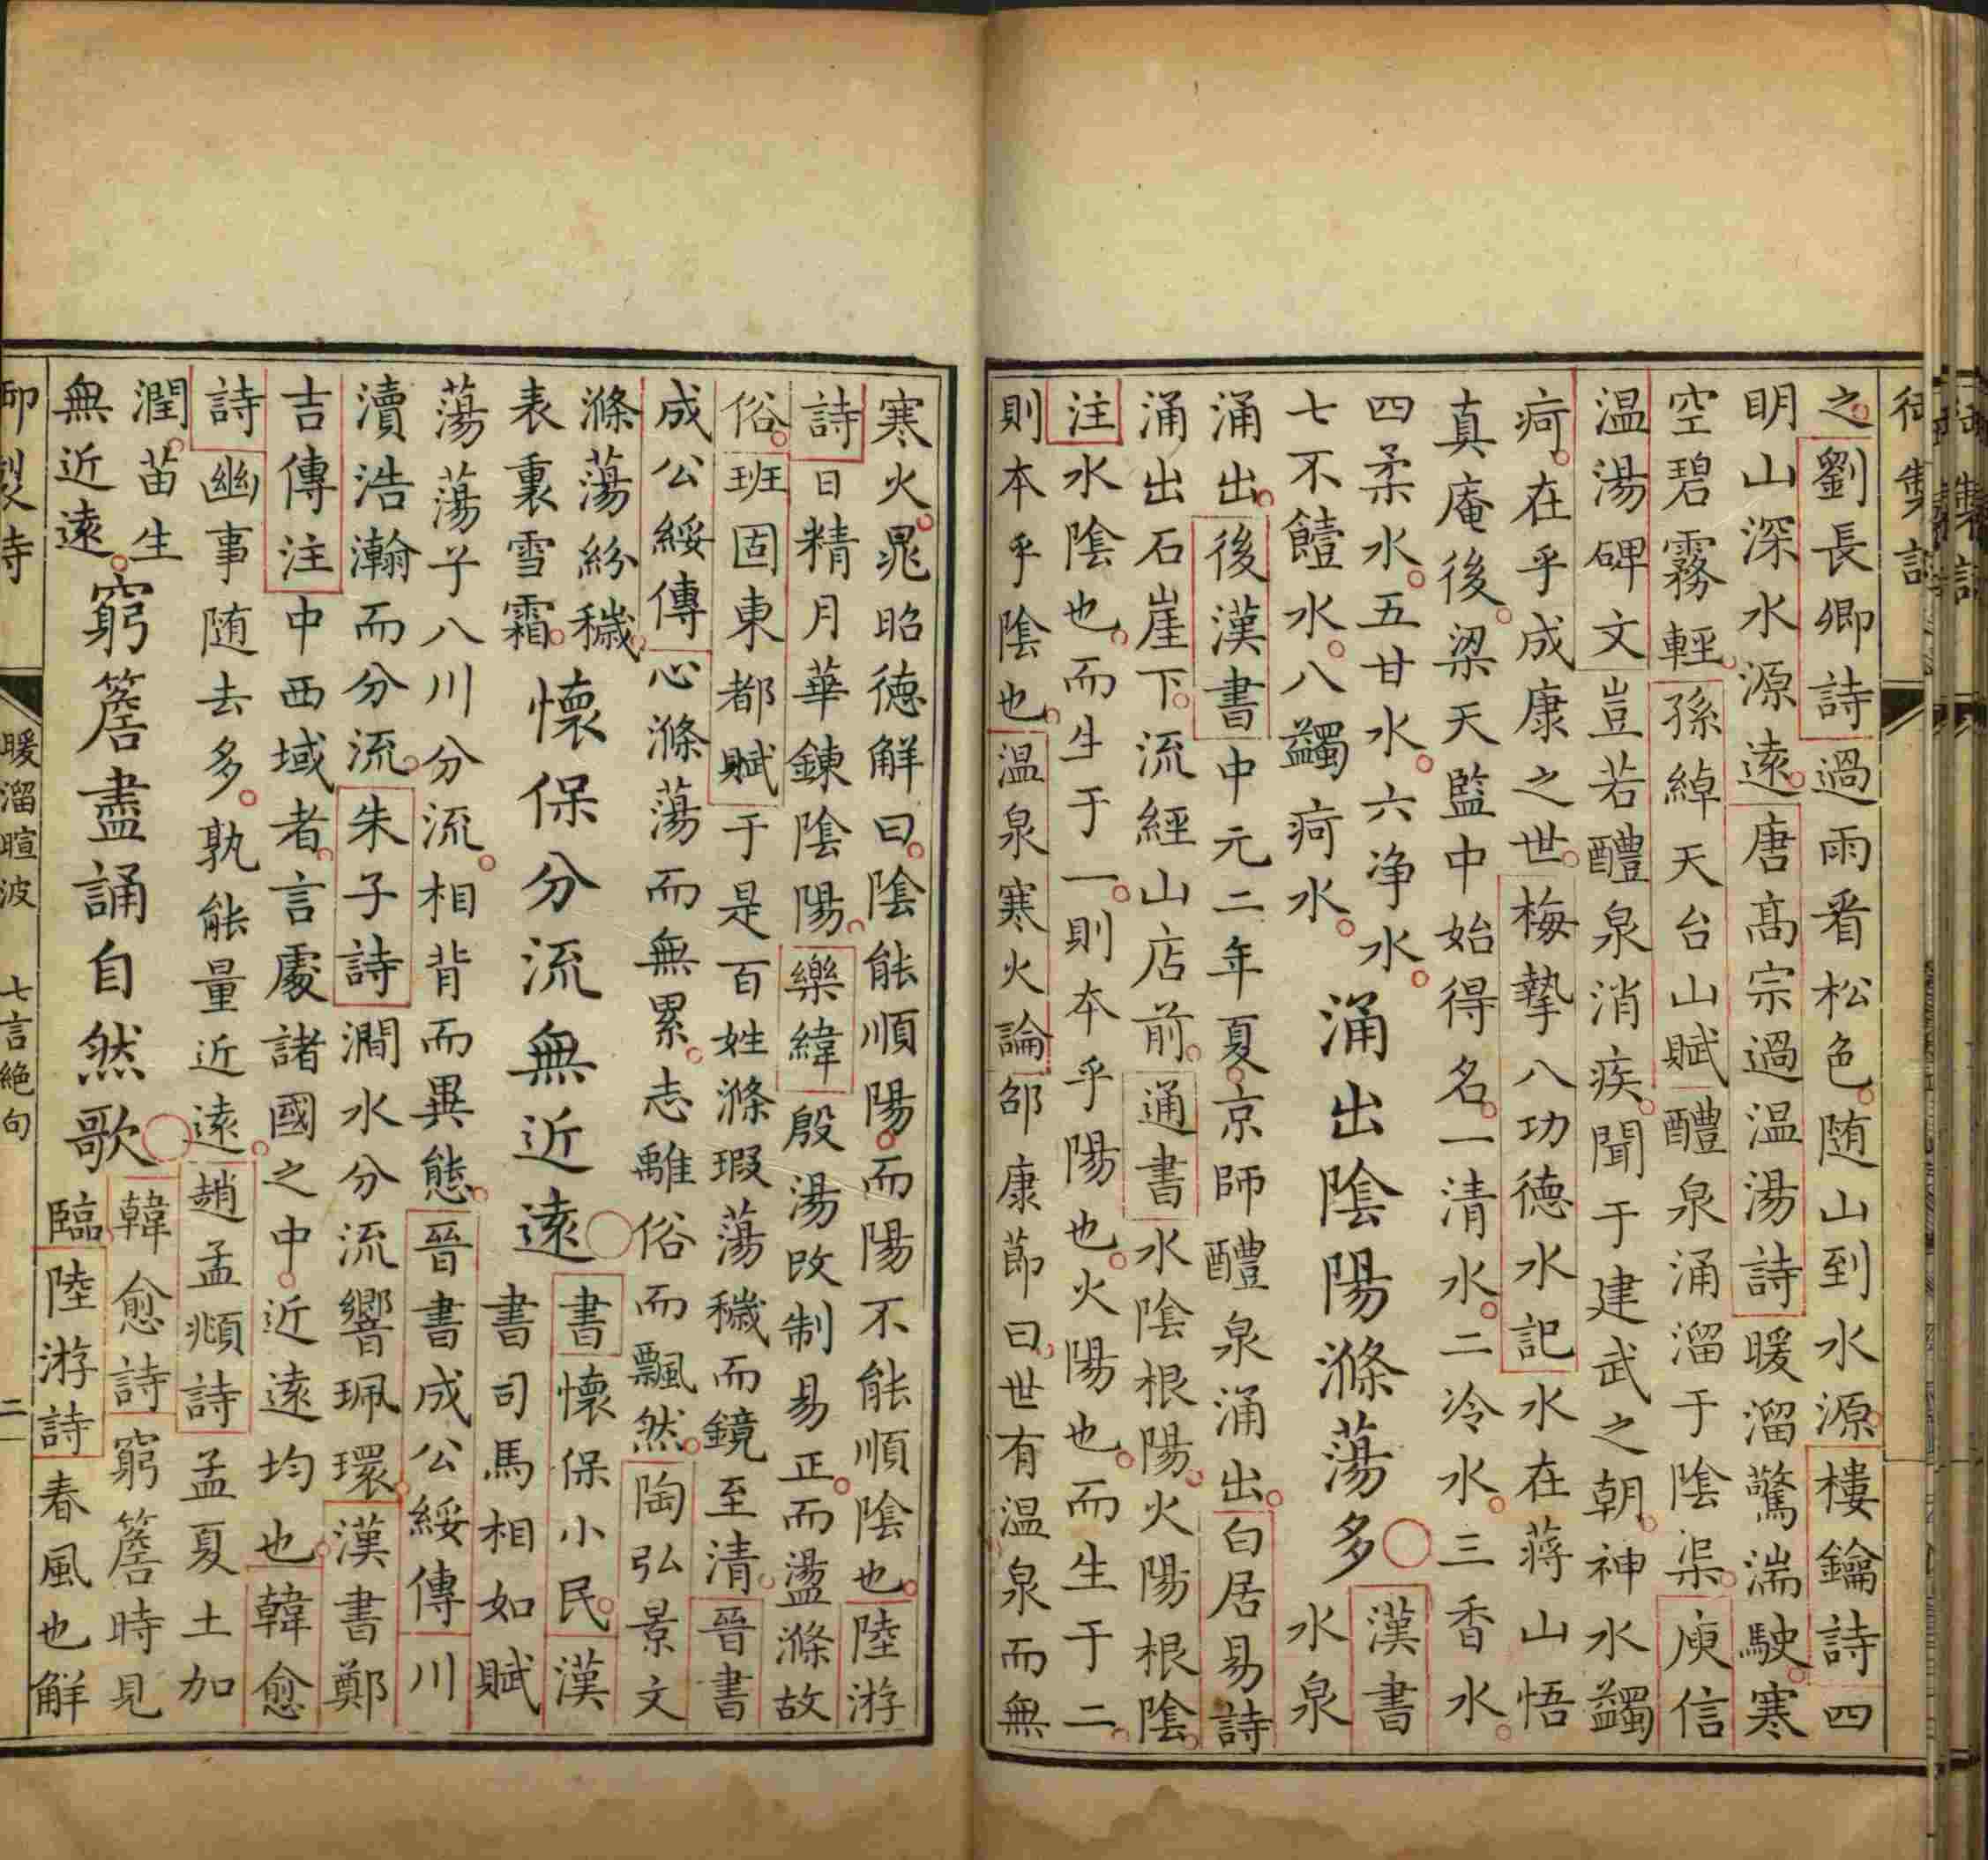 之劉長卿詩過雨看松色随山到水源樓鑰詩四
明山深水源遠唐髙宗過温湯詩暖溜驚湍駛寒
空碧霧輕孫綽天台山賦醴泉涌溜于陰渠庾信
温湯碑文豈若醴泉消疾聞于建武之朝神水蠲
疴在乎成康之世梅摯八功德水記水在蔣山悟
真庵後梁天監中始得名一清水二冷水三香水
四柔水五甘水六净水
七不饐水八蠲疴水
涌出陰陽滌蕩多
漢書
水泉
涌出後漢書中元二年夏京師醴泉涌出白居易詩
涌出石崖下流經山店前通書水陰根陽火陽根陰
注水陰也而生于一則本乎陽也火陽也而生于二
則本乎陰也温泉寒火論邵康莭曰世有温泉而無
寒火晁昭德解曰陰能順陽而陽不能順陰也陸游
詩日精月華鍊陰陽樂緯殷湯改制易正而盪滌故
俗班固東都賦于是百姓滌瑕蕩穢而鏡至清晉書
成公綏傳心滌蕩而無累志離俗而飄然陶弘景文
滌蕩紛穢
表裏雪霜
懷保分流無近遠
書懷保小民漢
書司馬相如賦
蕩蕩子八川分流相背而異態晉書成公綏傳川
瀆浩瀚而分流朱子詩澗水分流響珮環漢書鄭
吉傳注中西域者言處諸國之中近遠均也韓愈
詩幽事随去多孰能量近遠趙孟頫詩孟夏土加
潤苗生
無近遠
窮簷盡誦自然歌
韓愈詩窮簷時見
臨陸游詩春風也解
暖溜暄波 七言絶句 二